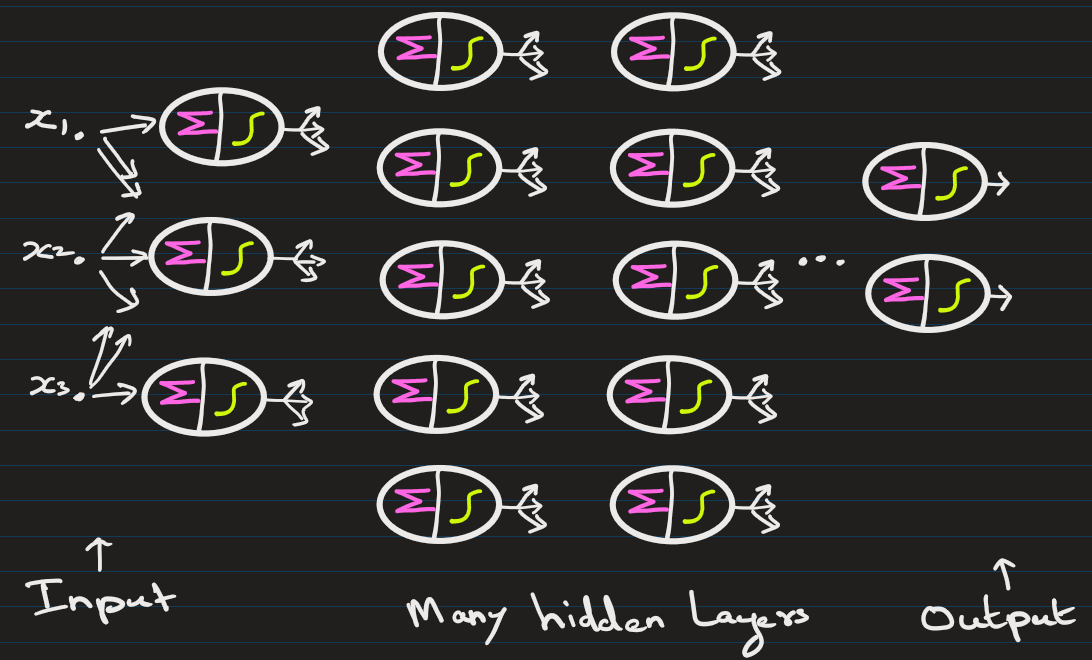 x1.
x2.
x3.
...
Input
Many hidden Layers
Output